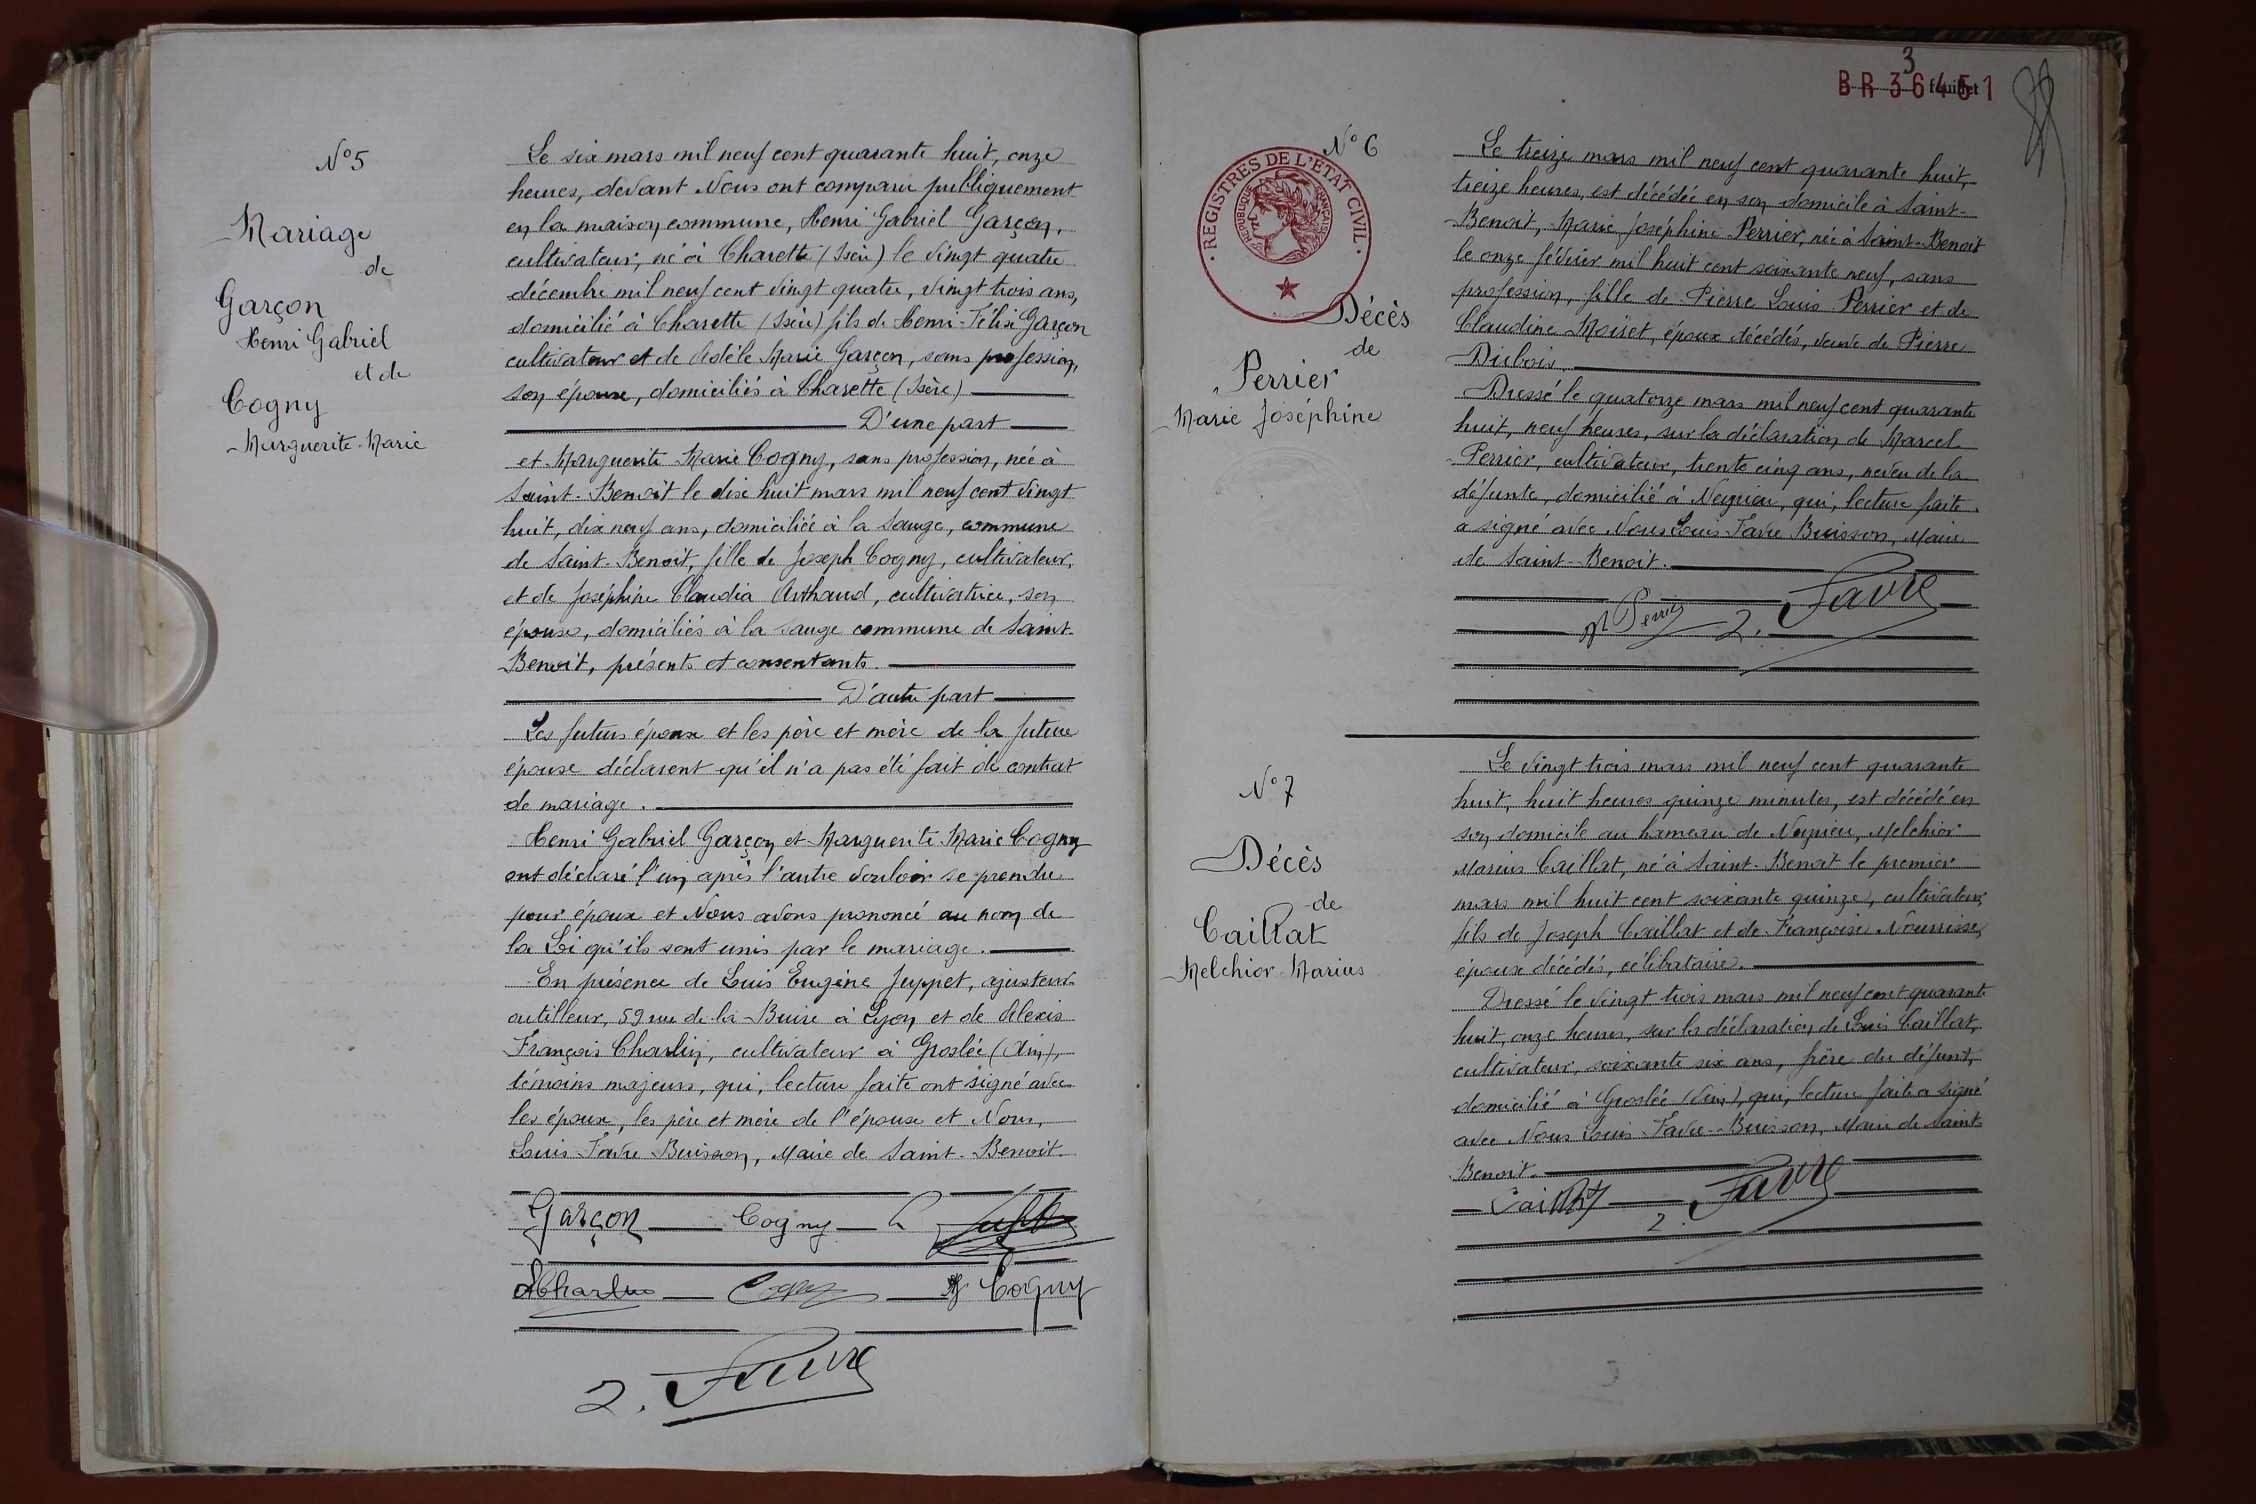 N° 5
Mariage
de
Garçon
Henri Gabriel
et de
Cogny
Marguerite Marie
Le six mars mil neuf cent quarante huit, onze
heures, devant Nous ont comparu publiquement
en la maison commune, Henri Gabriel Garçon,
cultivateur, né à Charette (Isère) le vingt quatre
décembre mil neuf cent vingt quatre, vingt trois ans,
domicilié à Charette (Isère) fils de Henri-Félix Garçon
cultivateur et de Adèle Marie Garçon, sans profession,
son épouse, domiciliés à Charette (Isère)
D'une part
et Marguerite Marie Cogny, sans profession, née à
Saint-Benoît le dix huit mars mil neuf cent vingt
huit, dix neuf ans, domiciliée à la Sauge, commune
de Saint-Benoit, fille de Joseph Cogny, cultivateur,
et de Joséphine Claudia Arthaud, cultivatrice, son
épouse, domiciliés à la Sauge commune de Saint-
Benoit, présents et consentants.
D'autre part
Les futurs époux et les père et mère de la future
épouse déclarent qu'il n'a pas été fait de contrat
de mariage.
Henri Gabriel Garçon et Marguerite Marie Cogny
ont déclaré l'un après l'autre vouloir se prendre
pour époux et Nous avons prononcé au nom de
la Loi qu'ils sont unis par le mariage.
En présence de Louis Eugène Juppet, ajusteur
outilleur, 59 rue de la Buire à Lyon et de Alexis
François Charlin, cultivateur à Groslée (Ain),
témoins majeurs, qui, lecture faite ont signé avec
les époux, les père et mère de l'épouse et Nous,
Louis Favre Buisson, Maire de Saint-Benoit.
Garçon Cogny
ACharlin Cogny Cogny
L. Favre
3
BR 36451
feuillet
N° 6
REGISTRES DE L'ETAT CIVIL
REPUBLIQUE FRANÇAISE
Décès
de
Perrier
Marie Joséphine
Le treize mars mil neuf cent quarante huit,
treize heures, est décédée en son domicile à Saint-
Benoit, Marie Joséphine Perrier, née à Saint-Benoit
le onze février mil huit cent soixante neuf, sans
profession, fille de Pierre Louis Perrier et de
Claudine Moiret, époux décédés, veuve de Pierre
Dubois.
Dressé le quatorze mars mil neuf cent quarante
huit, neuf heures, sur la déclaration de Marcel
Perrier, cultivateur, trente cinq ans, neveu de la
défunte, domicilié à Neyrieu, qui, lecture faite
a signé avec Nous Louis Favre Buisson, Maire
de Saint-Benoit.
M Perrier L. Favre
N° 7
Décès
de
Caillat
Melchior Marius
Le vingt trois mars mil neuf cent quarante
huit, huit heures quinze minutes, est décédé en
son domicile au hameau de Neyrieu, Melchior
Marius Caillat, né à Saint-Benoit le premier
mars mil huit cent soixante quinze, cultivateur,
fils de Joseph Caillat et de Françoise Nourrisse,
époux décédés, célibataire.
Dressé le vingt trois mars mil neuf cent quarante
huit, onze heures, sur la déclaration de Louis Caillat,
cultivateur, soixante six ans, frère du défunt,
domicilié à Groslée (Ain), qui, lecture faite a signé
avec Nous Louis Favre-Buisson, Maire de Saint-
Benoit.
Caillat L. Favre